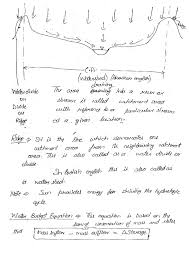 (Watershed) (American english)
Water divide The area draining into a river or
or stream is called catchment area
Divide with reference to a particular stream
or at a given location.
Ridge
Ridge :- It is the line which demarcate one
catchment area from its neighbouring catchment
area. This is also called as a water divide or
divide.
In british english this is also called as
water shed.
Note :- Sun provides energy for driving the hydrologic
cycle.
Water Budget Equation :- This equation is based on the
conservation of mass and
that Mass inflow - mass outflow = ΔStorage